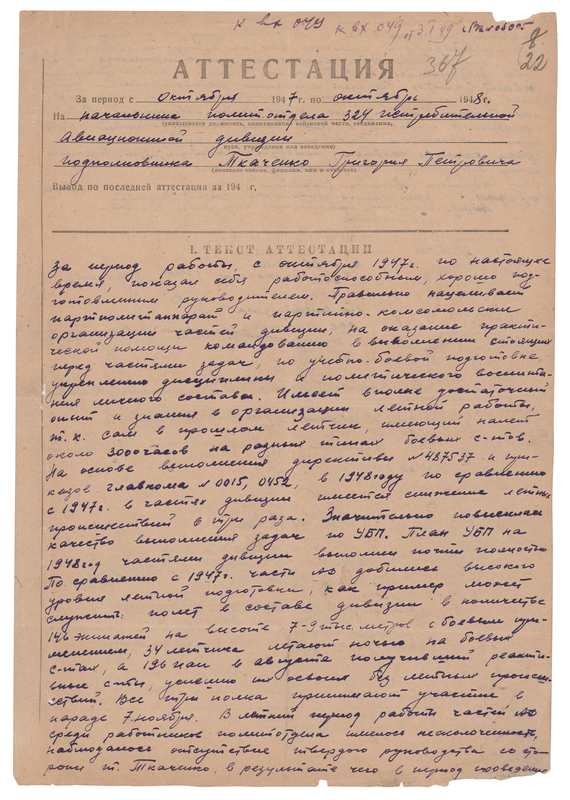 К вх 049
К вх. 049 от 3.I 49
8
22
367
АТТЕСТАЦИЯ
За период с октября 1947г. по октябрь 1948г.
На начальника политотдела 324 истребительной
(указывается должность, наименование войсковой части, соединения,
Авиационной дивизии
вуза, учреждения или заведения)
подполковника Ткаченко Григория Петровича
(воинское звание, фамилия, имя и отчество)
Вывод по последней аттестации за 194 г,
I. ТЕКСТ АТТЕСТАЦИИ
За период работы, с октября 1947г. по настоящее
время, показал себя работоспособным, хорошо под-
готовленным руководителем. Правильно нацеливает
партполитаппарат и партийно-комсомольские
организации частей дивизии, на оказание практи-
ческой помощи командованию в выполнении стоящих
перед частями задач, по учебно-боевой подготовке,
укреплению дисциплины и политического воспита-
ния личного состава. Имеет вполне достаточный
опыт и знания в организации летной работы,
т.к. сам в прошлом летчик, имеющий налет
около 3000 часов на разных типах боевых с-тов.
На основе выполнения директивы N 487537 и при-
казов главкома N 0015, 0452, в 1948 году по сравнению
с 1947г. в частях дивизии имеется снижение летных
происшествий в три раза. Значительно повысилась
качество выполнения задач по УБП. План УБП на
1948 год частями дивизии выполнен почти полностью
По сравнению с 1947г. части АД добились высокого
уровня летной подготовки, как пример может
служить: полет в составе дивизии в количестве
146 экипажей на высоте 7-9 тыс. метров с боевым при-
менением, 34 летчика летают ночью на боевых
с-тах, а 196 иап в августе получивший реактив-
ные с-ты, успешно их освоил без летных происше-
ствий. Все три полка принимают участие в
параде 7. ноября. В летний период работы частей АД
среди работников политотдела имелось несколоченность,
наблюдалось отсутствие твердого руководства со сто-
роны т. Ткаченко, в результате чего в период проведения